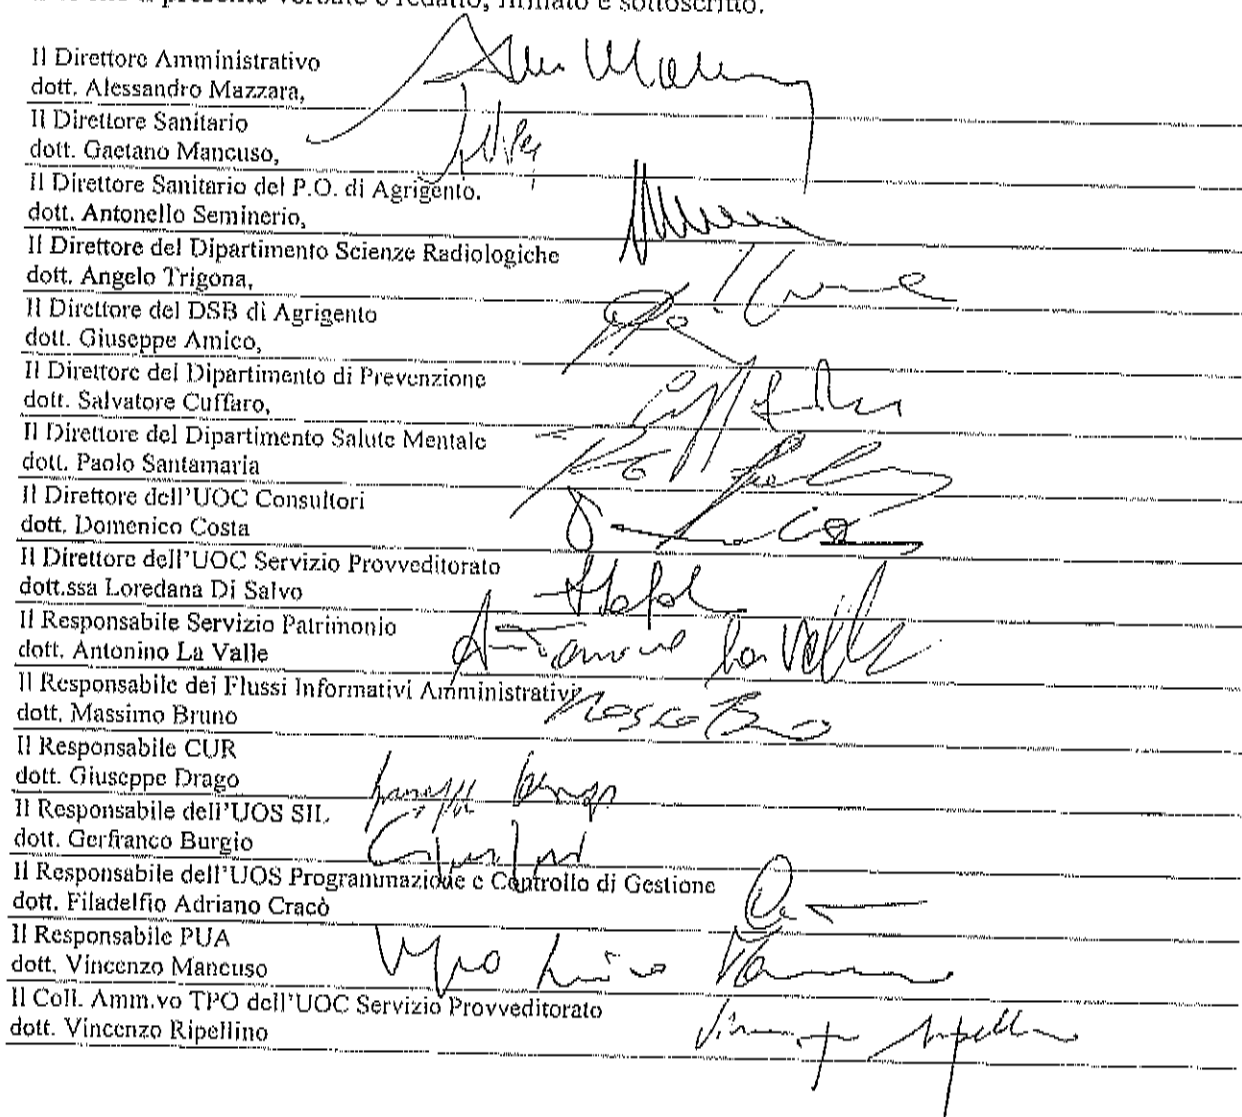 presente verbale è redatto, firmato e sottoscritto.
Il Direttore Amministrativo
dott. Alessandro Mazzara,
Il Direttore Sanitario
dott. Gaetano Mancuso,
Il Direttore Sanitario del P.O. di Agrigento.
dott. Antonello Seminerio,
Il Direttore del Dipartimento Scienze Radiologiche
dott. Angelo Trigona,
Il Direttore del DSB di Agrigento
dott. Giuseppe Amico,
Il Direttore del Dipartimento di Prevenzione
dott. Salvatore Cuffaro,
Il Direttore del Dipartimento Salute Mentale
dott. Paolo Santamaria
Il Direttore dell'UOC Consultori
dott. Domenico Costa
Il Direttore dell'UOC Servizio Provveditorato
dott.ssa Loredana Di Salvo
Il Responsabile Servizio Patrimonio
dott. Antonino La Valle
Il Responsabile dei Flussi Informativi Amministrativi
dott. Massimo Bruno
Il Responsabile CUR
dott. Giuseppe Drago
Il Responsabile dell'UOS SIL
dott. Gerfranco Burgio
Il Responsabile dell'UOS Programmazione e Controllo di Gestione
dott. Filadelfio Adriano Cracò
Il Responsabile PUA
dott. Vincenzo Mancuso
Il Coll. Amm.vo TPO dell'UOC Servizio Provveditorato
dott. Vincenzo Ripellino